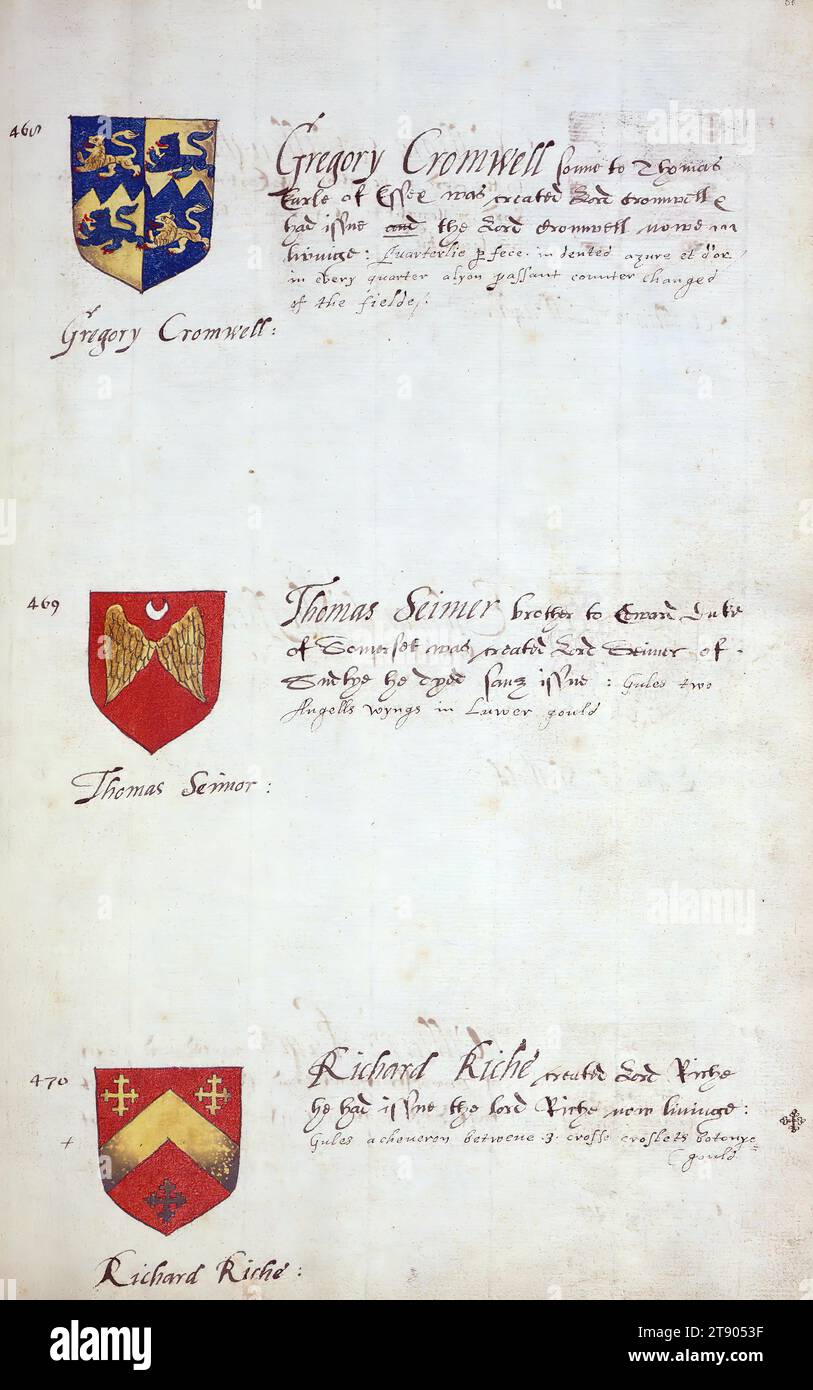 468
Gregory Cromwell sonne to Thomas
Earle of Essex was created Lord Cromwell &
had issue and the Lord Cromwell nowe
livinge: Quarterlie p fece in dented azure et d'or
in every quarter a lyon passant counter changed
of the fieldes.
Gregory Cromwell:
469
Thomas Seimer brother to Edward Duke
of Somerset was created Lord Seimer of
he dyed sanz issue: Gules two
Angells wyngs in Luwer gould
Thomas Seimor:
470
Richard Riche created Lord Riche
he had issue the lord Riche now livinge:
Gules a cheveron betwene 3 crosse croslets botonye
gould
Richard Riche:
alamy
Image ID: 2T9053F
www.alamy.com